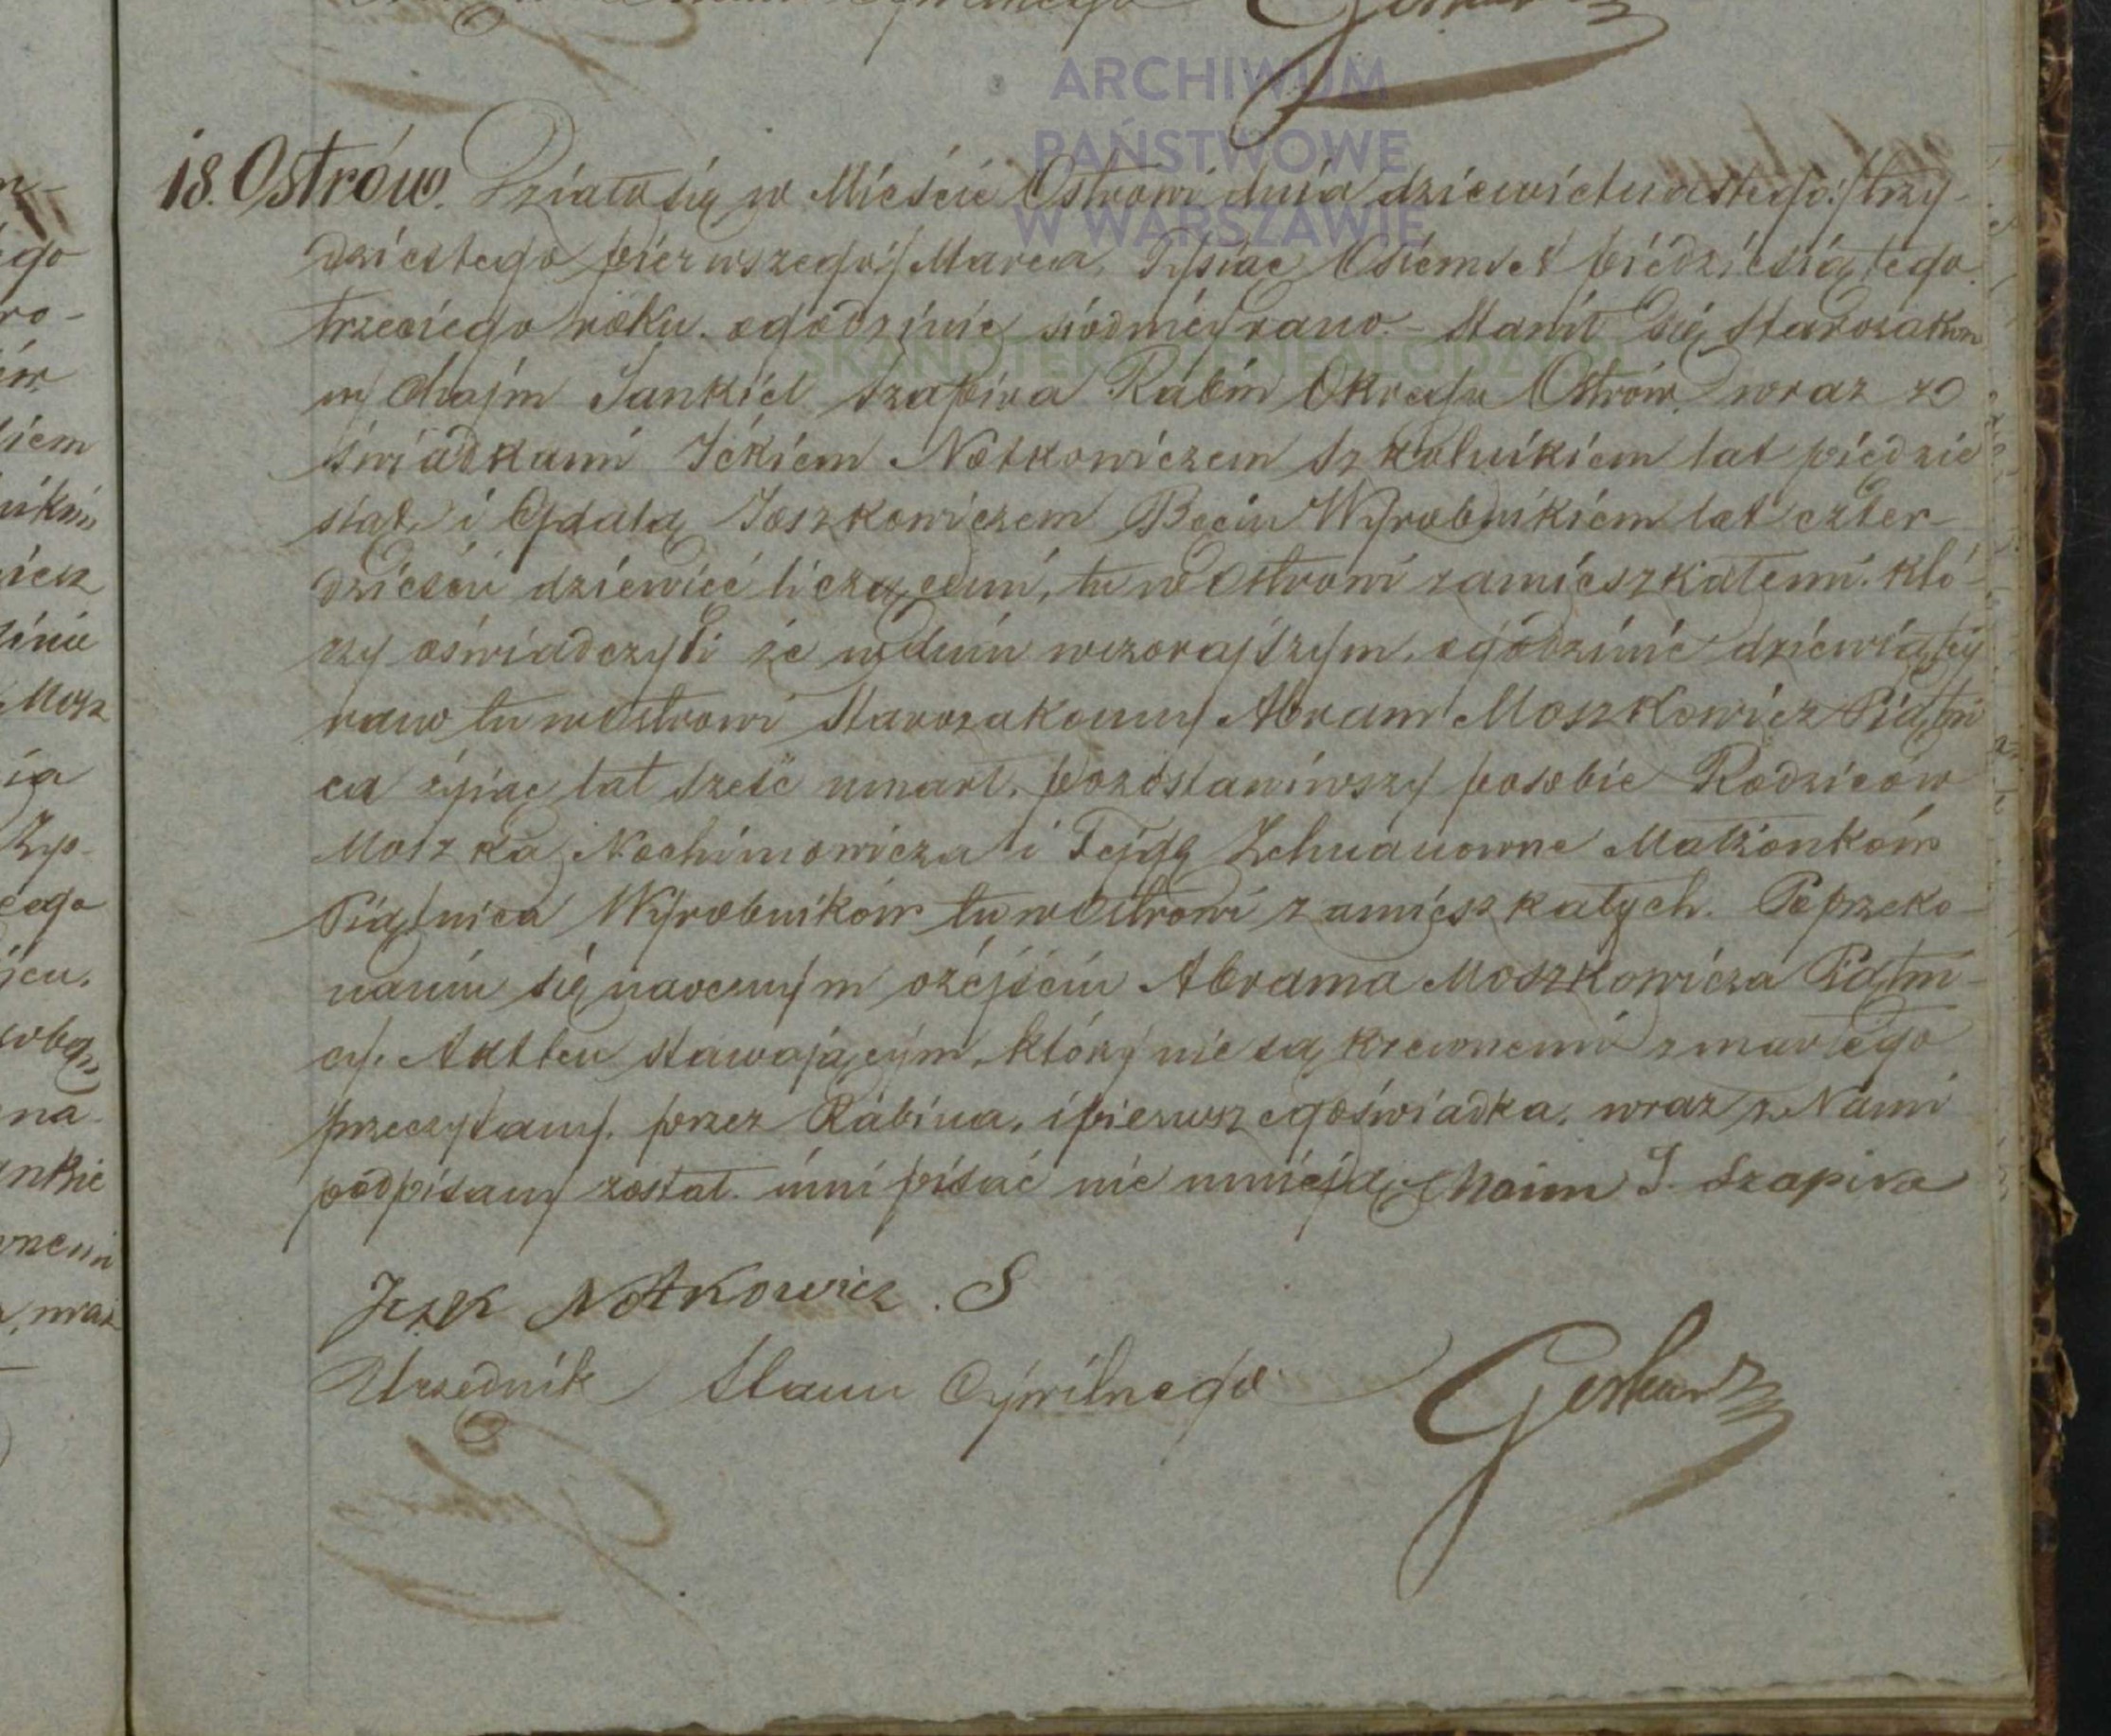 ARCHIWUM
PAŃSTWOWE
W WARSZAWIE
SKANOTEKA GENEALODZY.PL
18. Ostrów. Działo się w Mieście Ostrowi dnia dziewiętnastego:/trzy-
dziestego pierwszego:/ Marca, Tysiąc Ośmset piędziesiątego
trzeciego roku. o godzinie siódméj rano. – Stawił się Starozakon
ny Chajm Jankiel Szapira Rabin Okręgu Ostrów, wraz ze
świadkami Ickiem Notkowiczem Szkolnikiem lat piędzie
siąt, i Joszkowiczem Wyrobnikiem lat czter-
dzieści dziewięć liczącemi, tu w Ostrowi zamieszkałemi. któ-
rzy oświadczyli że w dniu wczorajszym, o godzinie dziewiątéj
rano tu w Ostrowi Starozakonny Abram Moszkowicz Piątni
ca żyiąc lat sześć umarł, pozostawiwszy po sobie Rodziców
Moszka Nochimowicza i Fejgę Małżonków
Piątnica Wyrobników tu w Ostrowi zamieszkałych. Po przeko-
naniu się naocznym o zejściu Abrama Moszkowicza Piątni-
cy. Akt ten stawającym, któzy nie są krewnemi zmarłego
przeczytany, przez Rabina, i pierwszego świadka, wraz z Nami
podpisany został. inni pisać nie umieją. Chaim J. Szapira
Iczk Notkowicz. S
Urzędnik Stanu Cywilnego